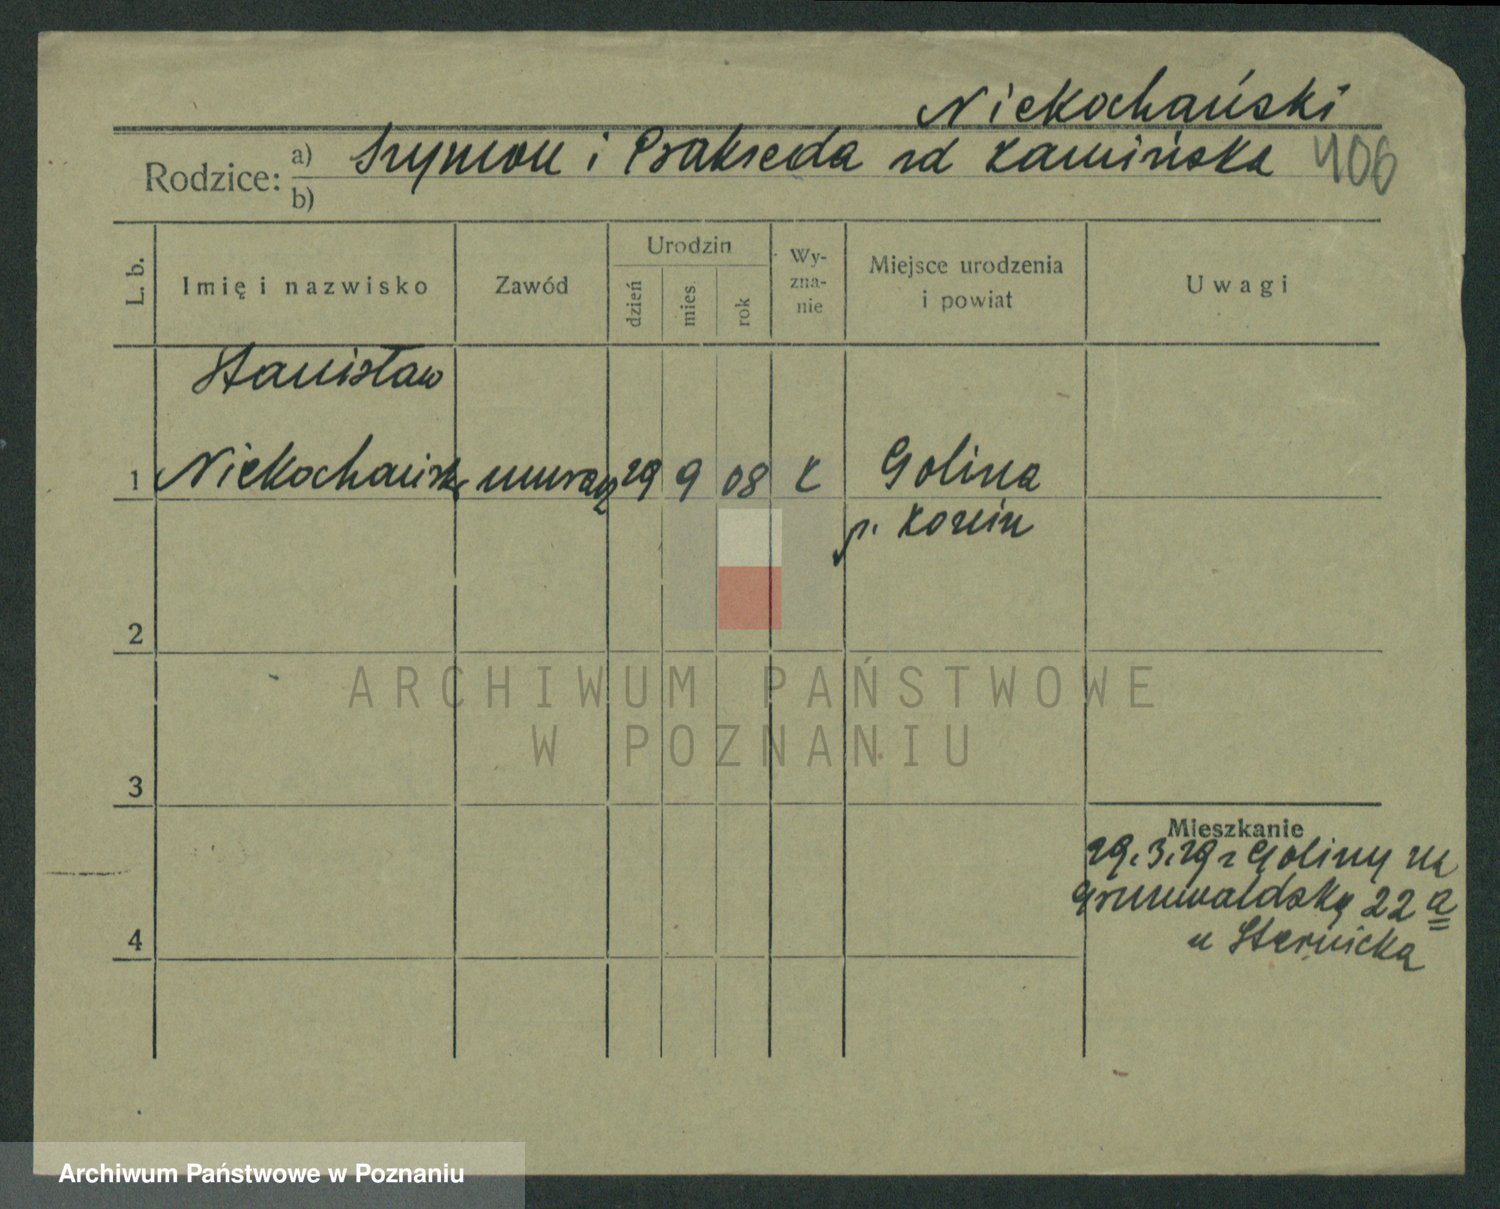 Niekochański
Rodzice: a) Szymon i Prakseda zd Kamińska 406
b)
L. b. Imię i nazwisko Zawód Urodzin dzień mies. rok Wy-zna-nie Miejsce urodzenia i powiat Uwagi
Stanisław
1 Niekochański murarz 29 9 08 K Golina
p. Konin
2
ARCHIWUM PAŃSTWOWE
W POZNANIU
3
Mieszkanie
29.3.29 z Goliny na
Grunwaldską 22 a
4 u Sternicka
Archiwum Państwowe w Poznaniu